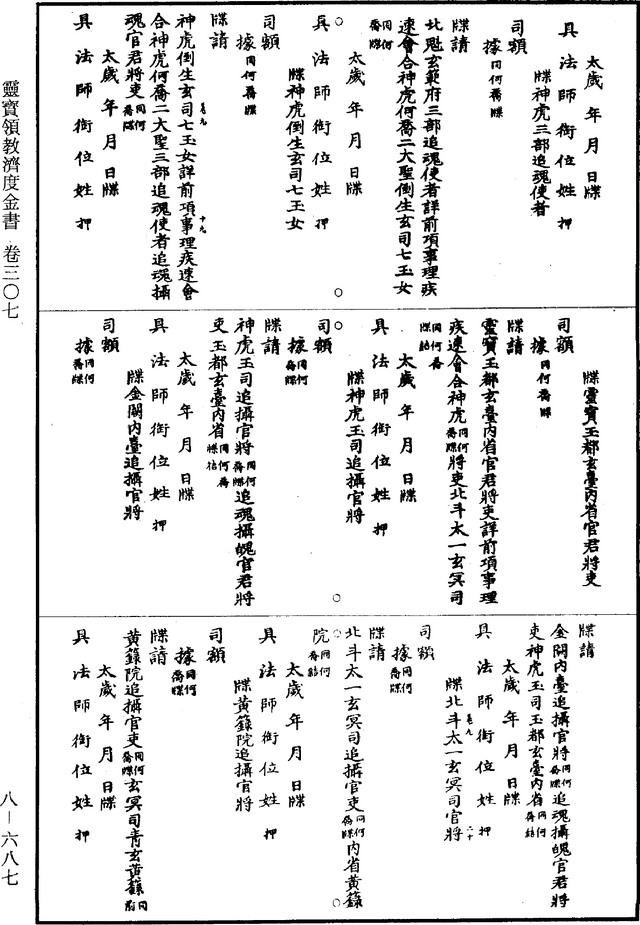 太歲年月日牒
具法師銜位姓押
牒神虎三部追魂使者
司額
據同何喬牒
牒請
北魁玄範府三部追魂使者詳前項事理疾
速會合神虎何喬二大聖倒生玄司七玉女
同何喬牒
太歲年月日牒
具法師銜位姓押
牒神虎倒生玄司七玉女
司額
據同何喬牒
牒請
神虎倒生玄司七玉女詳前項事理疾速會
卷九 十九
合神虎何喬二大聖三部追魂使者追魂攝
魂官君將吏同何喬牒
太歲年月日牒
具法師銜位姓押
牒靈寶玉都玄臺內省官君將吏
司額
據同何喬牒
牒請
靈寶玉都玄臺內省官君將吏詳前項事理
疾速會合神虎同何喬牒將吏北斗太一玄冥司
同何喬牒結
太歲年月日牒
具法師銜位姓押
牒神虎玉司追攝官將
司額
據同何喬牒
牒請
神虎玉司追攝官將同何喬牒追魂攝魄官君將
吏玉都玄臺內省同何喬牒結
太歲年月日牒
具法師銜位姓押
牒金闕內臺追攝官將
司額
據同何喬牒
牒請
金闕內臺追攝官將同何喬牒追魂攝魄官君將
吏神虎玉司玉都玄臺內省同何喬結
太歲年月日牒
具法師銜位姓押
卷九 二十
牒北斗太一玄冥司官將
司額
據同何喬牒
牒請
北斗太一玄冥司追攝官吏同何喬牒內省黃籙
院同何喬結
太歲年月日牒
具法師銜位姓押
牒黃籙院追攝官將
司額
據同何喬牒
牒請
黃籙院追攝官吏同何喬牒玄冥司青玄黃籙同前
太歲年月日牒
具法師銜位姓押
靈寶領教濟度金書 卷三〇七
八－六八七